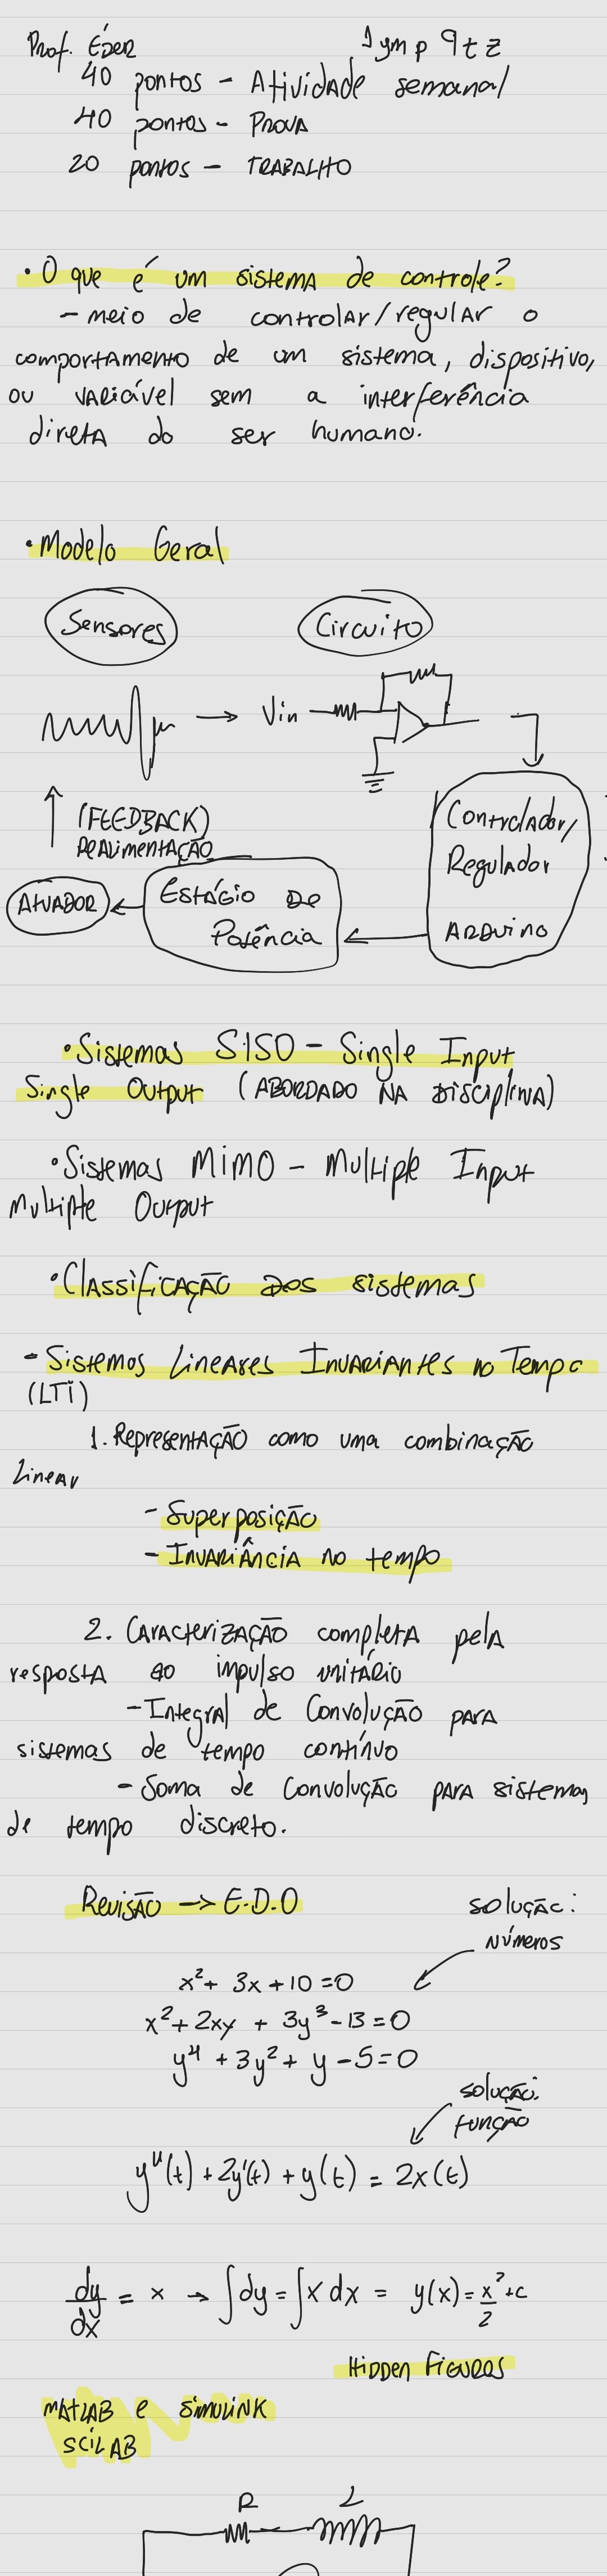 Prof. ÉDER 1ymp9tz
40 pontos - Atividade semanal
40 pontos - PROVA
20 pontos - TRABALHO
• O que é um sistema de controle?
- meio de controlar/regular o
comportamento de um sistema, dispositivo,
ou variável sem a interferência
direta do ser humano.
• Modelo Geral
Sensores Circuito
→ Vin
(FEEDBACK)
REALIMENTAÇÃO
Controlador/
Regulador
ARDuino
ESTÁGIO DE
Potência
ATUADOR
• Sistemas SISO - Single Input
Single Output (ABORDADO NA DISCIPLINA)
• Sistemas MIMO - Multiple Input
Multiple Output
• Classificação dos sistemas
- Sistemas Lineares Invariantes no Tempo
(LTI)
1. Representação como uma combinação
Linear
- Superposição
- Invariância no tempo
2. Caracterização completa pela
resposta ao impulso unitário
- Integral de Convolução para
sistemas de tempo contínuo
- Soma de Convolução para sistemas
de tempo discreto.
Revisão → E.D.O
solução:
números
x² + 3x + 10 = 0
x² + 2xy + 3y³ - 13 = 0
y⁴ + 3y² + y - 5 = 0
solução:
função
y''(t) + 2y'(t) + y(t) = 2x(t)
dy/dx = x → ∫dy = ∫x dx = y(x) = x²/2 + c
HIDDEN FIGURES
MATLAB e SIMULINK
SCILAB
R L